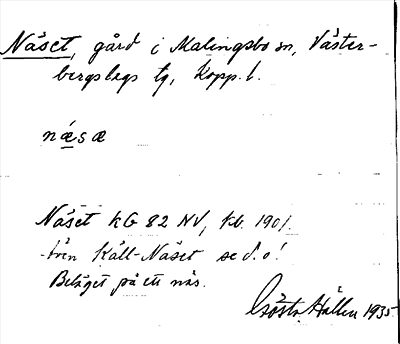 Näset, gård i Malingsbo sn, Väster-
bergslags tg, Kopp. l.
næsæ
Näset kG 82 NV, kb. 1901.
även Käll-Näset se d.o!
Beläget på ett näs.
Gösta Hallén 1935